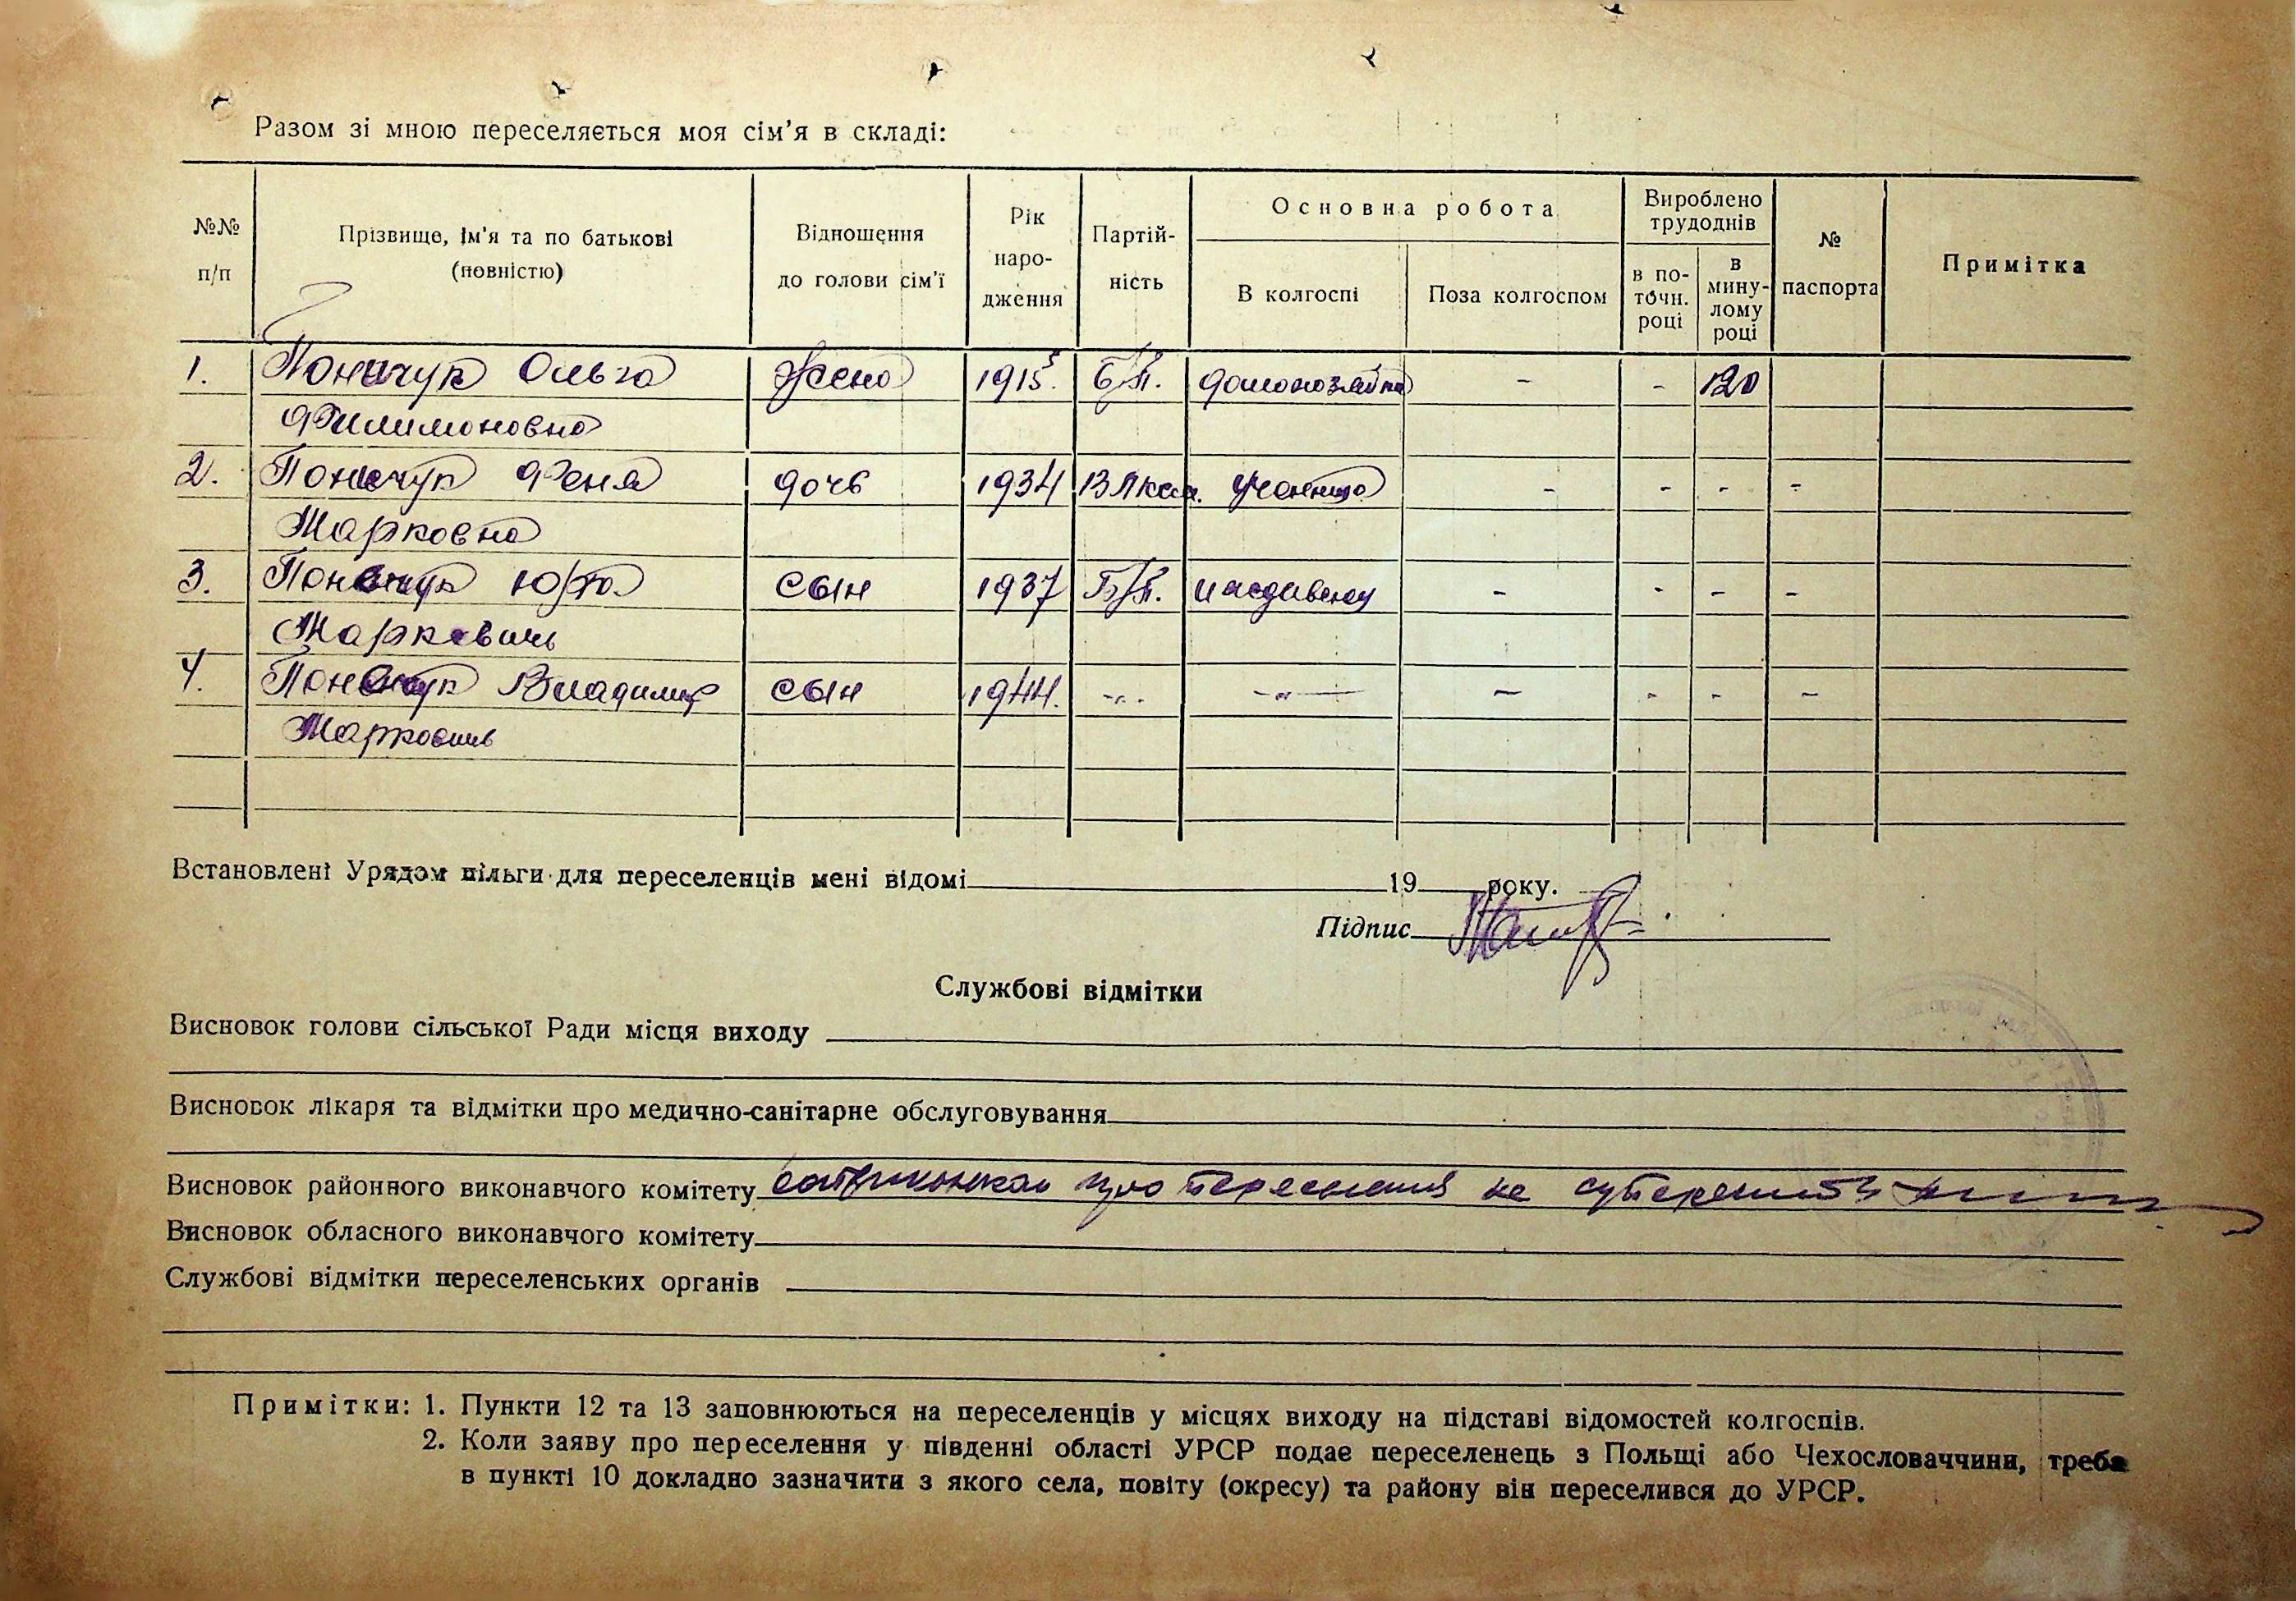 Разом зі мною переселяється моя сім'я в складі:
№№ п/п
Прізвище, ім'я та по батькові (повністю)
Відношення до голови сім'ї
Рік народження
Партійність
Основна робота
В колгоспі
Поза колгоспом
Вироблено трудоднів
в поточн. році
в минулому році
№ паспорта
Примітка
1. Ольга Жена 1915. Б/П. домохозяйка - - 120
Филимоновна
2. Феня дочь 1934 ВЛксм. ученица - - - -
Марковна
3. сын 1937 Б/П. - - - -
Маркович
4. Владимир сын 1944. -"- -"- - - - -
Маркович
Встановлені Урядом пільги для переселенців мені відомі 19 року.
Підпис
Службові відмітки
Висновок голови сільської Ради місця виходу
Висновок лікаря та відмітки про медично-санітарне обслуговування
Висновок районного виконавчого комітету не
Висновок обласного виконавчого комітету
Службові відмітки переселенських органів
Примітки: 1. Пункти 12 та 13 заповнюються на переселенців у місцях виходу на підставі відомостей колгоспів.
2. Коли заяву про переселення у південні області УРСР подає переселенець з Польщі або Чехословаччини, треба
в пункті 10 докладно зазначити з якого села, повіту (окресу) та району він переселився до УРСР.